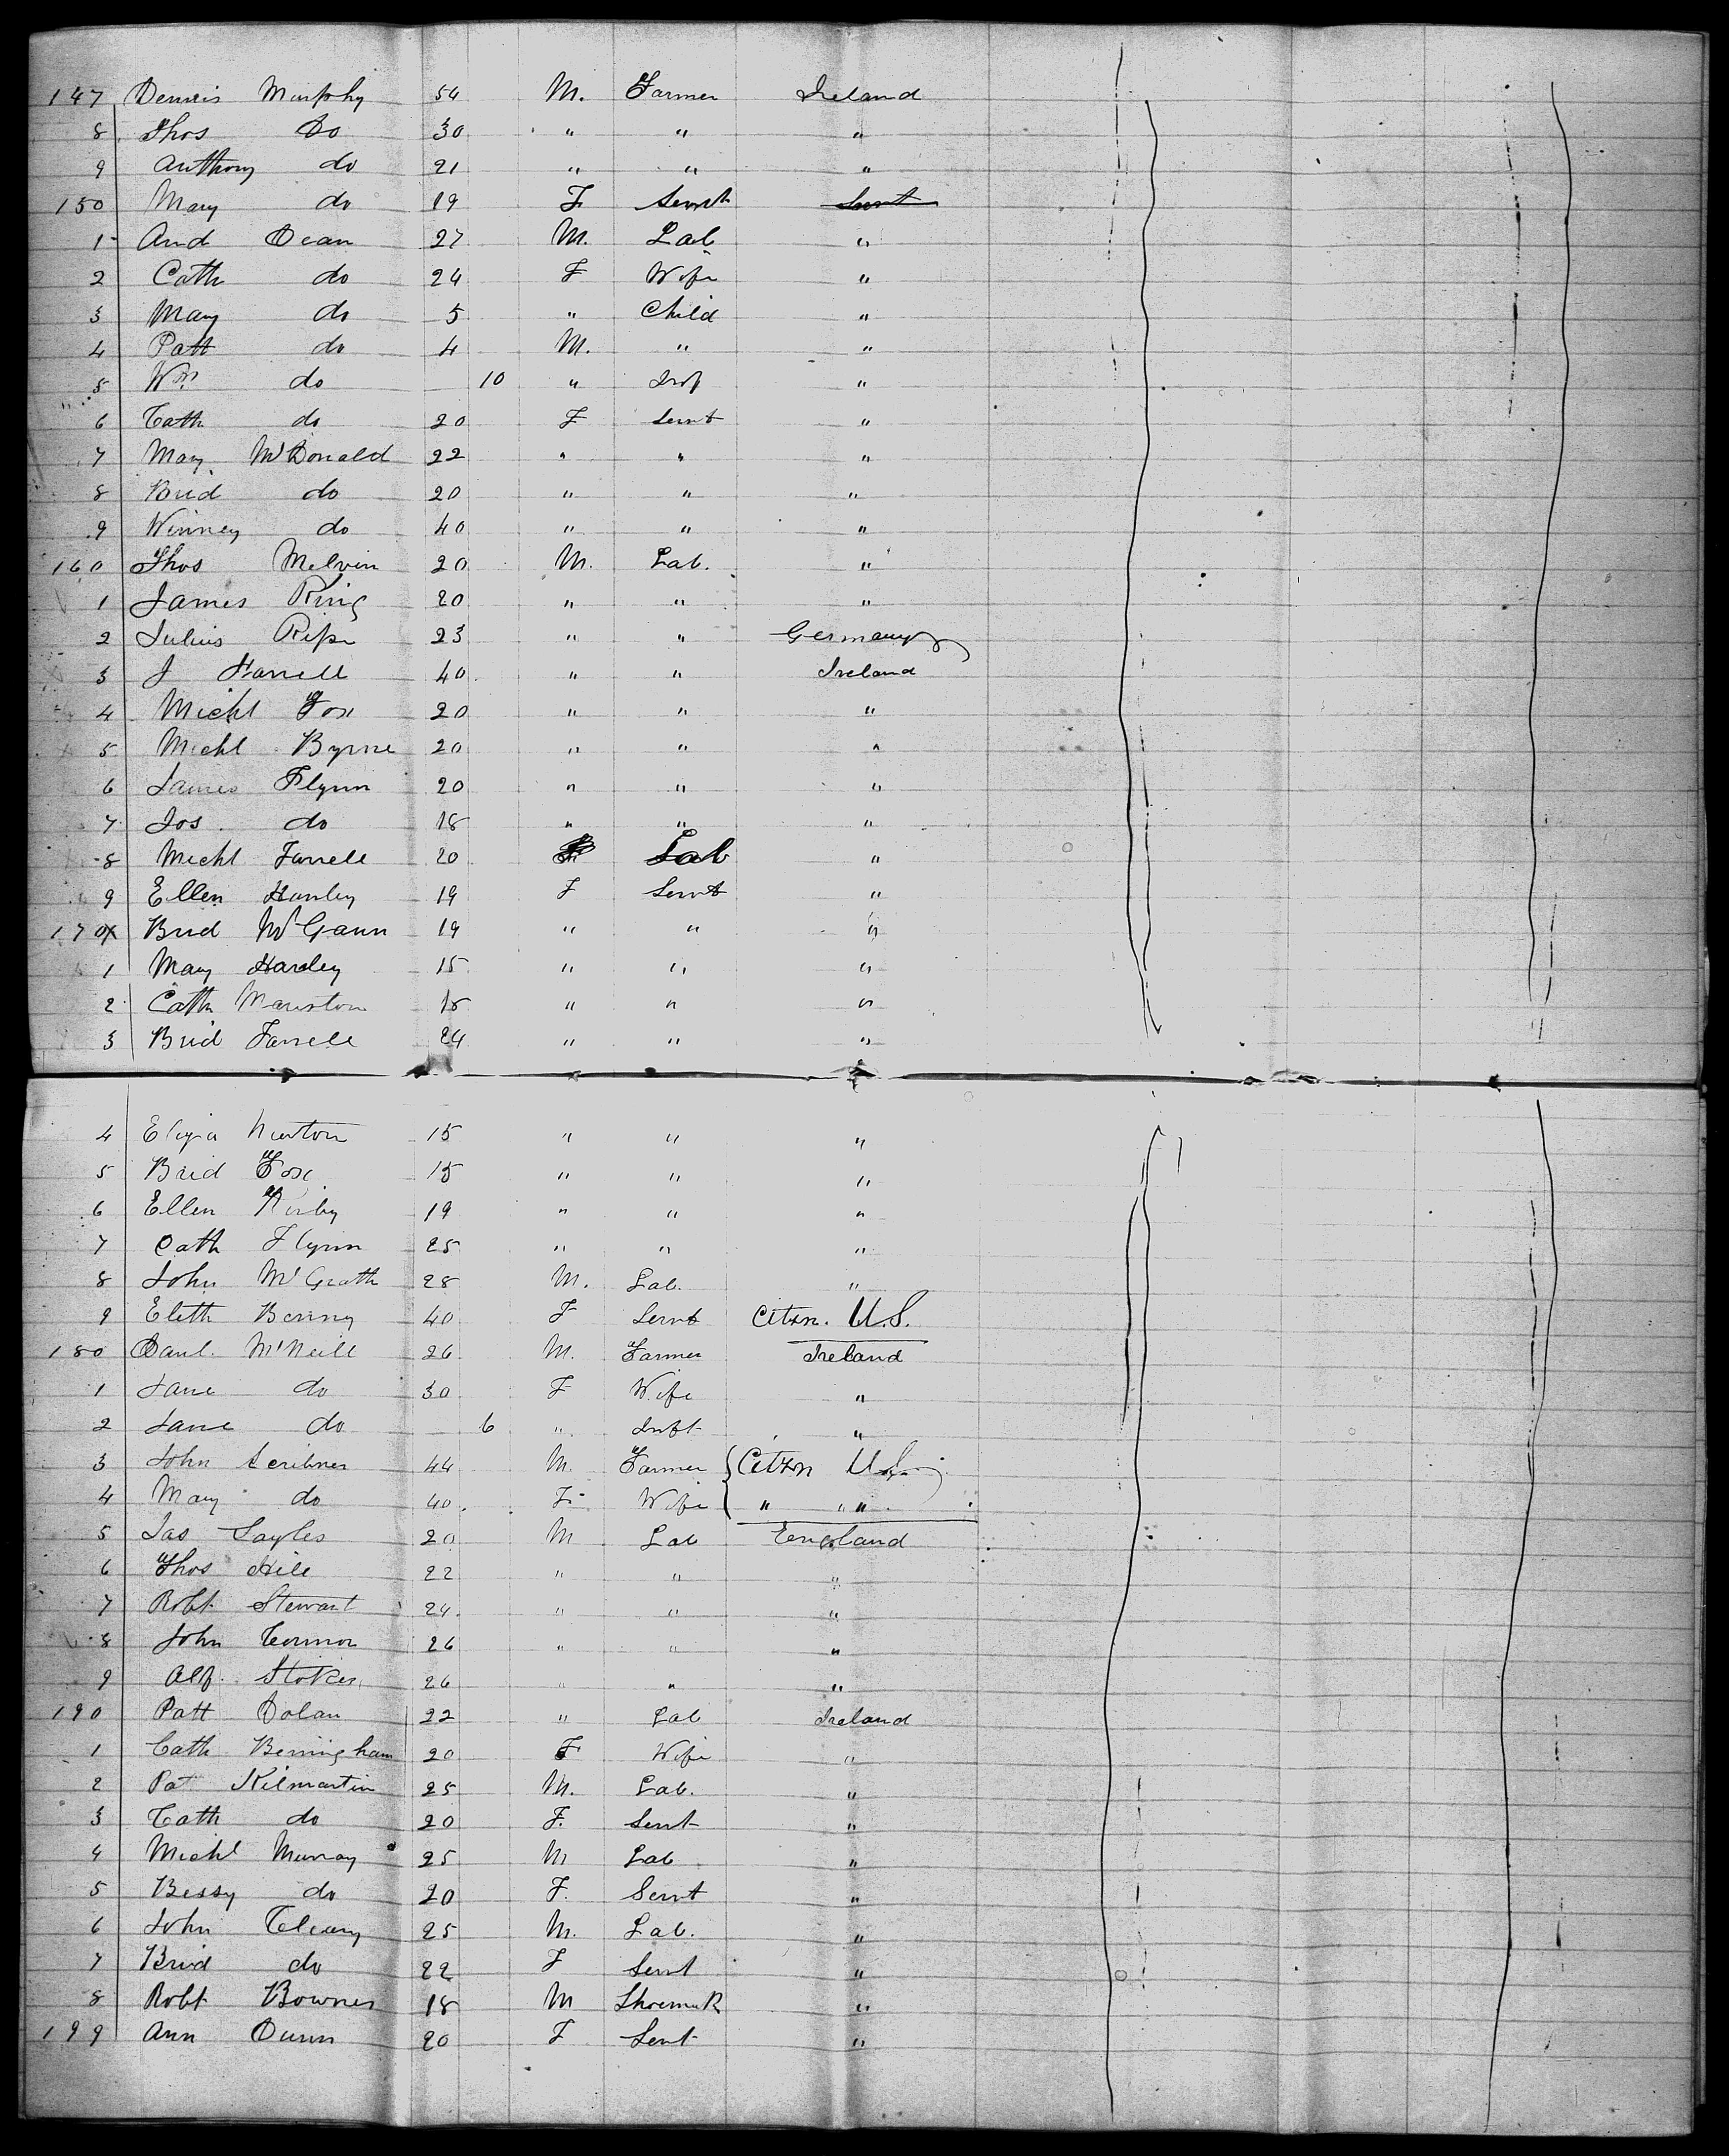 147 Dennis Murphy 54 M. Farmer Ireland
8 Thos Do 30 " " "
9 Anthony do 21 " " "
150 Mary do 19 F Servt Servt
1 And Dean 27 M. Lab "
2 Cath do 24 F Wife "
3 Mary do 5 " Child "
4 Patt do 4 M. " "
5 Wm do 10 " Inf "
6 Cath do 20 F Servt "
7 Mary McDonald 22 " " "
8 Brid do 20 " " "
9 Winney do 40 " " "
160 Thos Melvin 20 M. Lab. "
1 James King 20 " " "
2 Julius 23 " " Germany
3 J Farrell 40 " " Ireland
4 Michl Fox 20 " " "
5 Michl Byrne 20 " " "
6 James Flynn 20 " " "
7 Jos. do 18 " " "
8 Michl Farrell 20 Lab "
9 Ellen Hanley 19 F Servt "
170 Brid McGann 19 " " "
1 Mary Hanley 15 " " "
2 Cath 18 " " "
3 Brid Farrell 24 " " "
4 Eliza 15 " " "
5 Brid Fox 15 " " "
6 Ellen Kirby 19 " " "
7 Cath Flynn 25 " " "
8 John McGrath 28 M. Lab. "
9 Elith 40 F Servt Citzn. U.S.
180 Danl. McNeill 26 M. Farmer Ireland
1 Jane do 30 F Wife "
2 Jane do 6 " Inft "
3 John Scribner 44 M. Farmer Citzn U.S.
4 Mary do 40 F Wife " " "
5 Jas Sayles 20 M Lab England
6 Thos Hill 22 " " "
7 Robt Stewart 24 " " "
8 John Connor 26 " " "
9 Alf. Stokes 26 " " "
190 Patt Dolan 22 " Lab Ireland
1 Cath Bermingham 20 F Wife "
2 Pat Kilmartin 25 M. Lab. "
3 Cath do 20 F. Servt "
4 Michl Murray 25 M Lab "
5 Bessy do 20 F. Servt "
6 John Cleary 25 M. Lab. "
7 Brid do 22 F Servt "
8 Robt Bownes 18 M Shoemak "
199 Ann Dunn 20 F Servt "